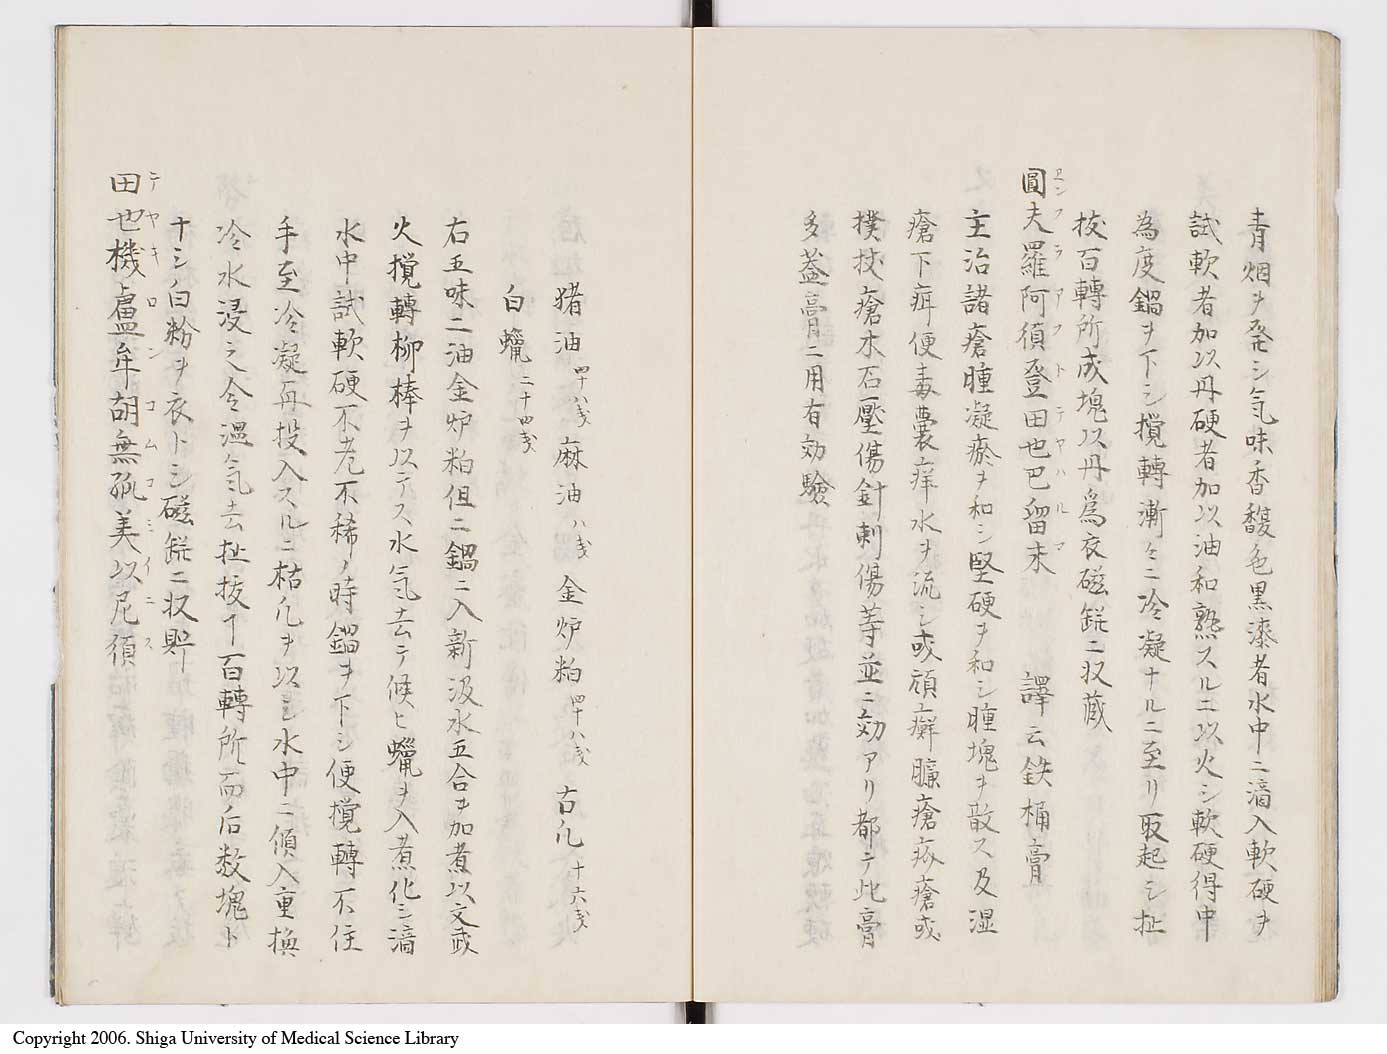 青烟ヲ発シ氣味香馥色黒漆者水中ニ滴入軟硬ヲ
試軟者加以丹硬者加以油和熟スルニ以火シ軟硬得中
為度鍋ヲ下シ攪轉漸々ニ冷凝ナルニ至リ取起シ扯
拔百轉所成塊以丹爲衣磁鋌ニ収藏
圓夫羅阿須登田也巴留末 譯云鉄桶膏
ヱンフラアストテヤハルマ
主治諸瘡腫凝瘀ヲ和シ堅硬ヲ和シ腫塊ヲ散ス及湿
瘡下疳便毒嚢痒水ヲ流シ或頑癬臁瘡疥瘡或
撲損瘡木石壓傷針刺傷等並ニ効アリ都テ此膏
多蓋膏ニ用有効驗
猪油 四十八戔 麻油 八戔 金炉粕 四十八戔 古瓦 十六戔
白蠟 二十四戔
右五味二油金炉粕但ニ鍋ニ入新汲水五合ヲ加煮以文武
火攪轉柳棒ヲ以テス水氣去テ候ヒ蠟ヲ入煮化シ滴
水中試軟硬不老不稀ノ時鍋ヲ下シ便攪轉不住
手至冷凝再投入スルニ枯瓦ヲ以シ水中ニ傾入重換
冷水浸之令温氣去扯拔丁百轉所而后数塊ト
ナシ白粉ヲ衣トシ磁鋌ニ収貯
田也機盧牟胡無孤美以尼須
テヤキロンコムコミイニス
Copyright 2006. Shiga University of Medical Science Library